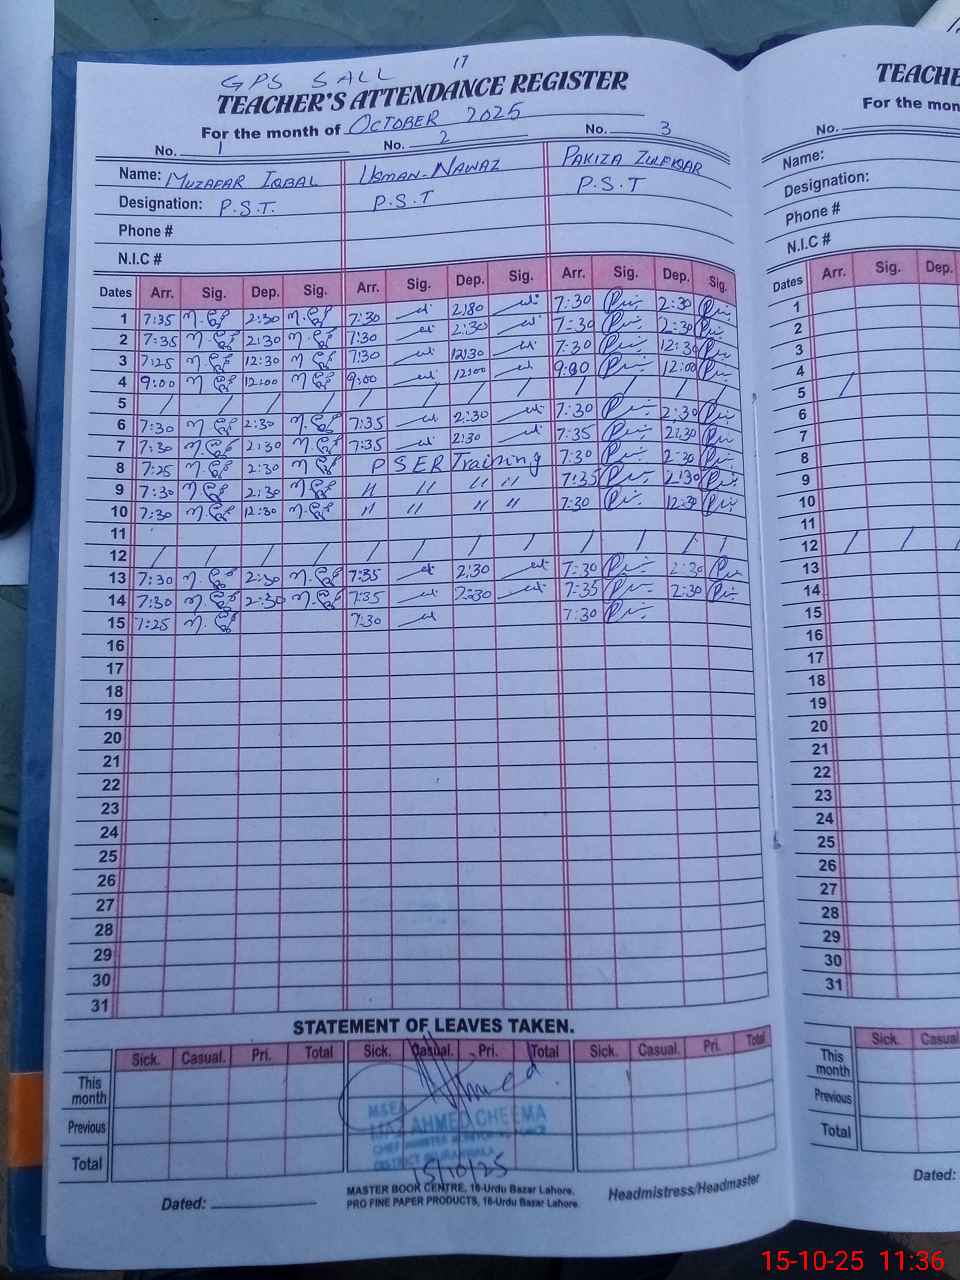 17
GPS SALL
TEACHER'S ATTENDANCE REGISTER
For the month of OCTOBER 2025
No. 1 No. 2 No. 3
Name: MUZAFAR IQBAL USMAN-NAWAZ PAKIZA ZULFIQAR
Designation: P.S.T. P.S.T P.S.T
Phone #
N.I.C #
Dates Arr. Sig. Dep. Sig. Arr. Sig. Dep. Sig. Arr. Sig. Dep. Sig.
1 7:35 2:30 7:30 2:30 7:30 2:30
2 7:35 2:30 7:30 2:30 7:30 2:30
3 7:25 12:30 7:30 12:30 7:30 12:30
4 9:00 12:00 9:00 12:00 9:00 12:00
5 / / / / / / / / / / / /
6 7:30 2:30 7:35 2:30 7:30 2:30
7 7:30 2:30 7:35 2:30 7:35 2:30
8 7:25 2:30 PSER Training 7:30 2:30
9 7:30 2:30 " " " " 7:35 2:30
10 7:30 12:30 " " " " 7:30 12:30
11
12 / / / / / / / / / / / /
13 7:30 2:30 7:35 2:30 7:30 2:30
14 7:30 2:30 7:35 2:30 7:35 2:30
15 7:25 7:30 7:30
16
17
18
19
20
21
22
23
24
25
26
27
28
29
30
31
STATEMENT OF LEAVES TAKEN.
Sick. Casual. Pri. Total Sick. Casual. Pri. Total Sick. Casual. Pri. Total
This month
Previous
Total
AHMED CHEEMA
15/10/25
Dated:
MASTER BOOK CENTRE, 16-Urdu Bazar Lahore.
PRO FINE PAPER PRODUCTS, 16-Urdu Bazar Lahore.
Headmistress/Headmaster
TEACHE
For the mon
No.
Name:
Designation:
Phone #
N.I.C #
Dates Arr. Sig. Dep.
1
2
3
4
5 /
6
7
8
9
10
11
12 / / /
13
14
15
16
17
18
19
20
21
22
23
24
25
26
27
28
29
30
31
Sick. Casual
This month
Previous
Total
Dated:
15-10-25 11:36